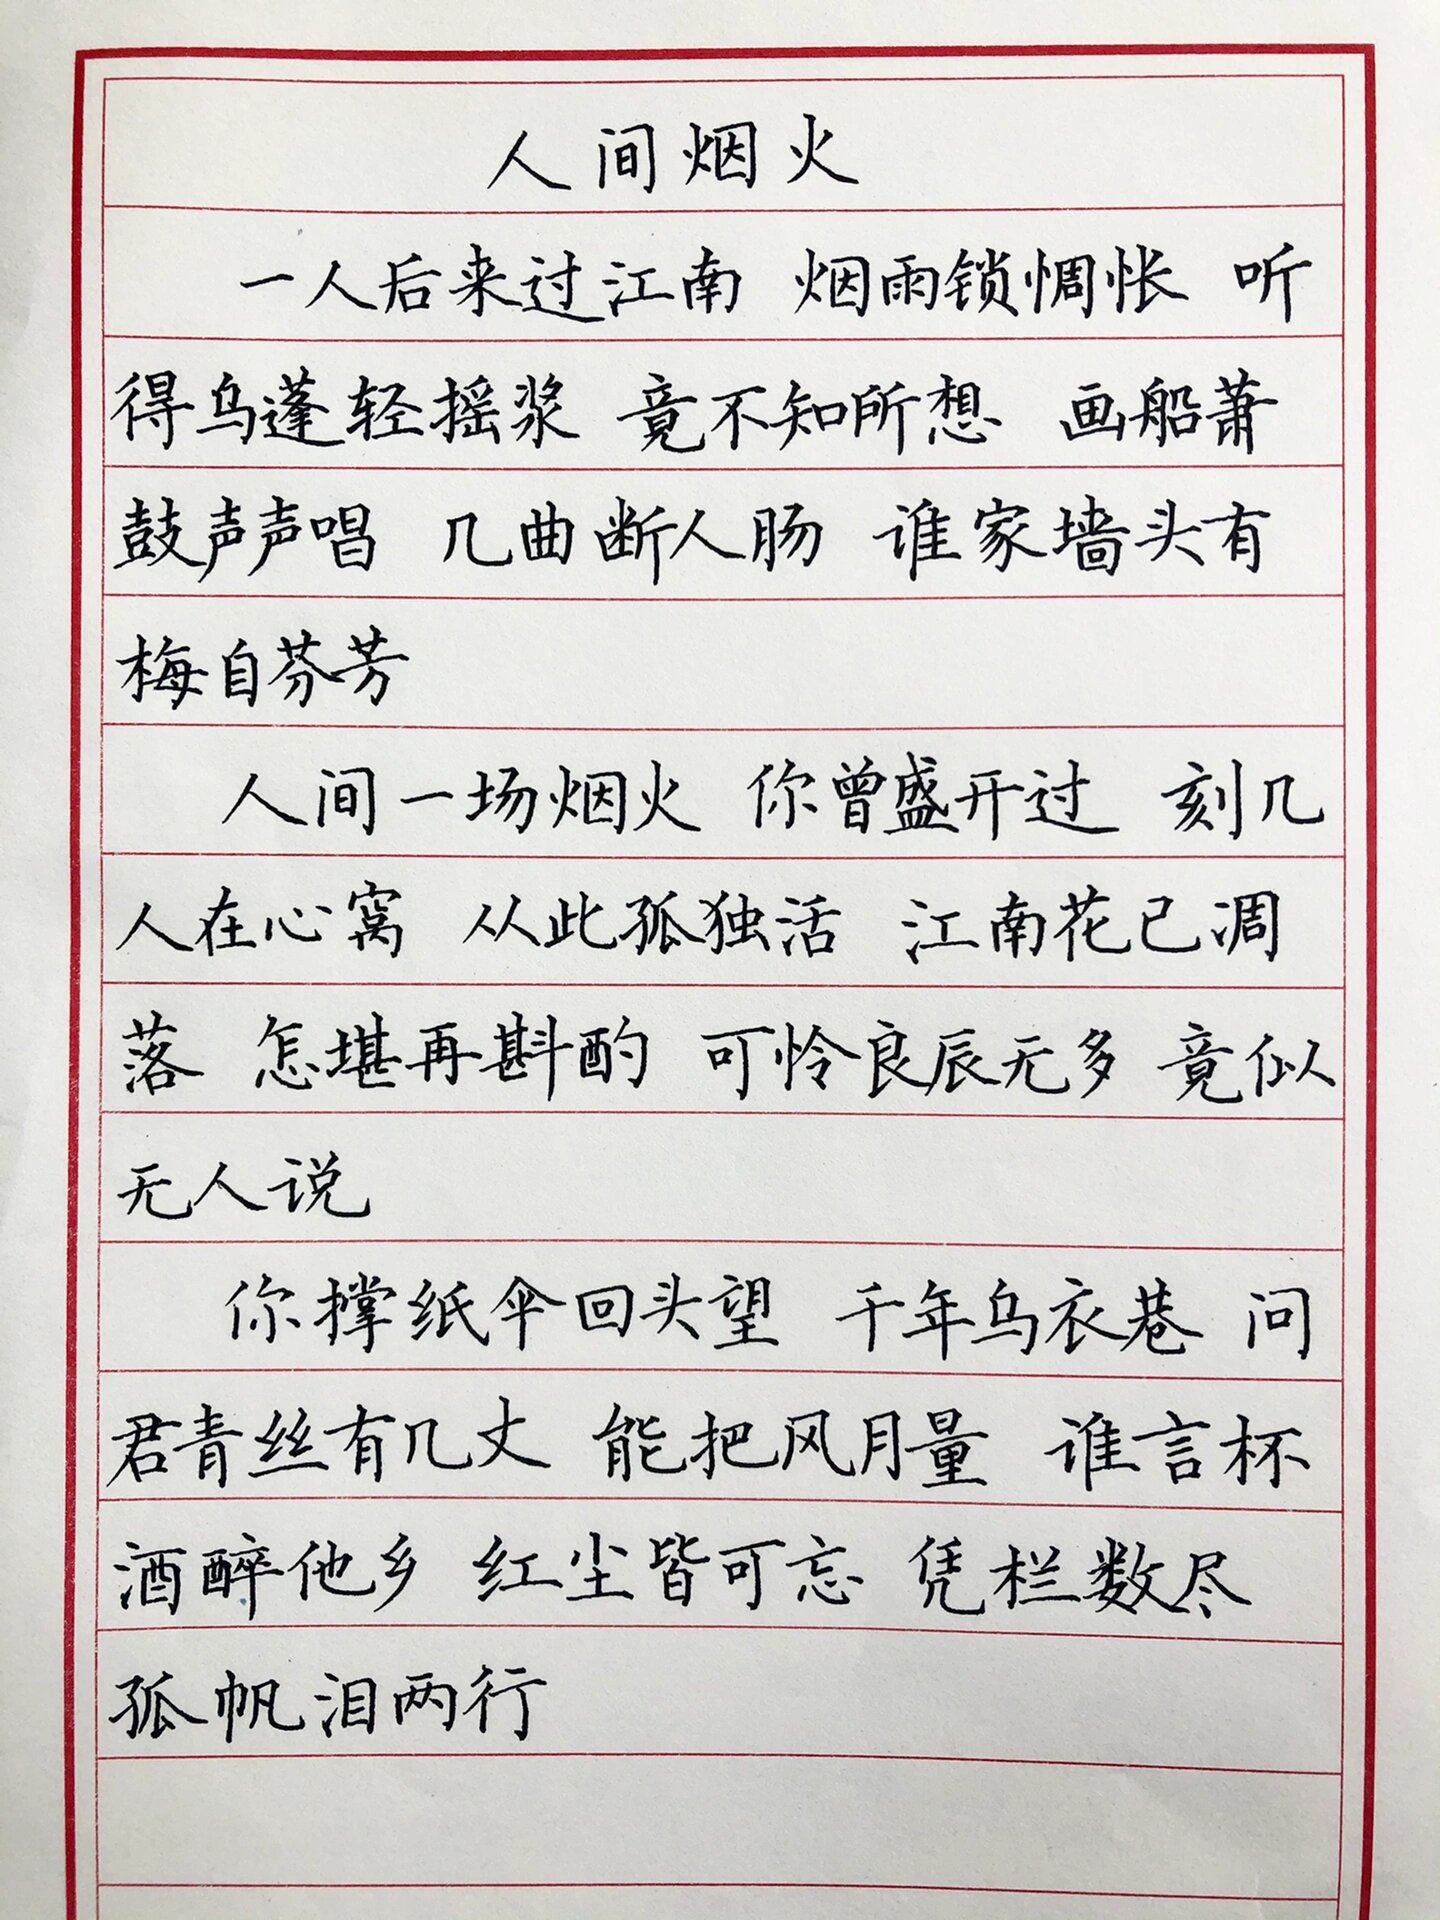 人间烟火
一人后来过江南 烟雨锁惆怅 听
得乌蓬轻摇浆 竟不知所想 画船萧
鼓声声唱 几曲断人肠 谁家墙头有
梅自芬芳
人间一场烟火 你曾盛开过 刻几
人在心窝 从此孤独活 江南花已凋
落 怎堪再斟酌 可怜良辰无多 竟似
无人说
你撑纸伞回头望 千年乌衣巷 问
君青丝有几丈 能把风月量 谁言杯
酒醉他乡 红尘皆可忘 凭栏数尽
孤帆泪两行